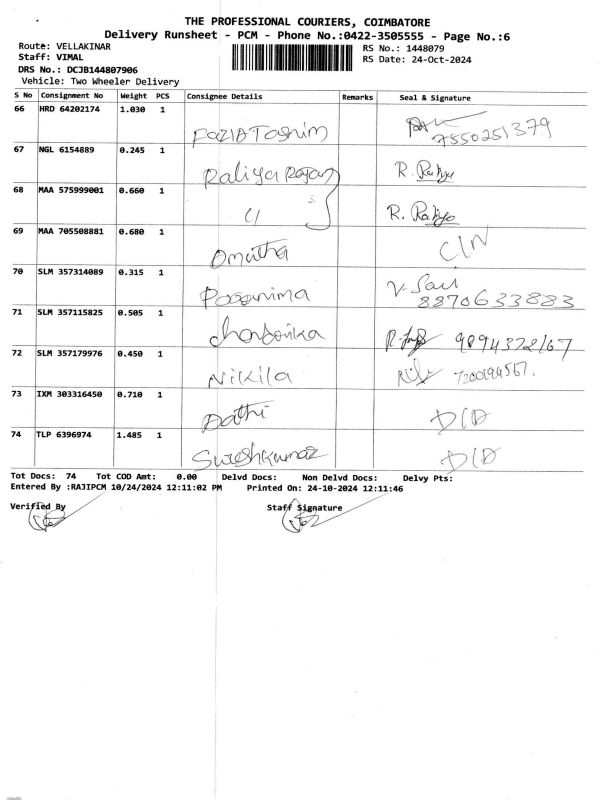 THE PROFESSIONAL COURIERS, COIMBATORE
Delivery Runsheet - PCM - Phone No.:0422-3505555 - Page No.:6
Route: VELLAKINAR
RS No.: 1448079
Staff: VIMAL
RS Date: 24-Oct-2024
DRS No.: DCJB144807906
Vehicle: Two Wheeler Delivery
S No Consignment No Weight PCS Consignee Details Remarks Seal & Signature
66 HRD 64202174 1.030 1
7550251379
67 NGL 6154889 0.245 1 R.
68 MAA 575999001 0.660 1 R.
69 MAA 705508881 0.680 1
70 SLM 357314089 0.315 1
8870633883
71 SLM 357115825 0.505 1
72 SLM 357179976 0.450 1 Nikila
73 IXM 303316450 0.710 1
74 TLP 6396974 1.485 1 Sureshkumar
Tot Docs: 74 Tot COD Amt: 0.00 Delvd Docs: Non Delvd Docs: Delvy Pts:
Entered By :RAJIPCM 10/24/2024 12:11:02 PM Printed On: 24-10-2024 12:11:46
Verified By Staff Signature